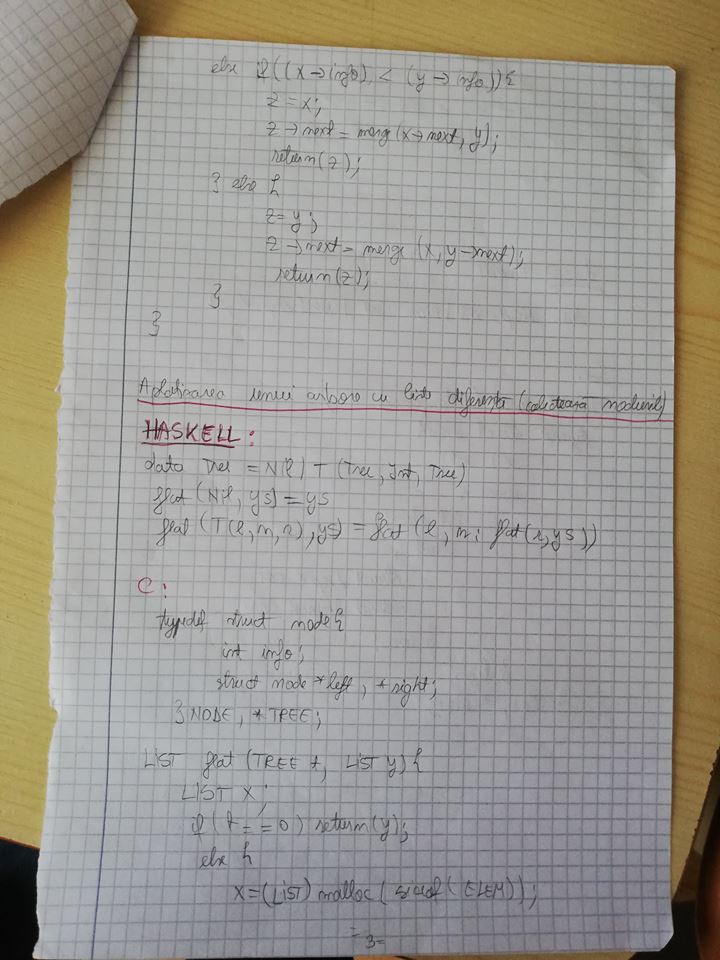 else if((x→info) < (y→info)){
z=x;
z→next=merge(x→next, y);
return(z);
} else {
z=y;
z→next=merge(x, y→next);
return(z);
}
}
Aplatizarea unui arbore cu liste diferență (colectează nodurile)
HASKELL:
data Tree = Nil | T (Tree, Int, Tree)
flat (Nil, ys) = ys
flat (T(l, n, r), ys) = flat (l, n: flat(r, ys))
C:
typedef struct node{
int info;
struct node *left, *right;
}NODE, *TREE;
LIST flat (TREE t, LIST y){
LIST x;
if(t==0) return(y);
else {
x=(LIST)malloc(sizeof(ELEM));
-3-